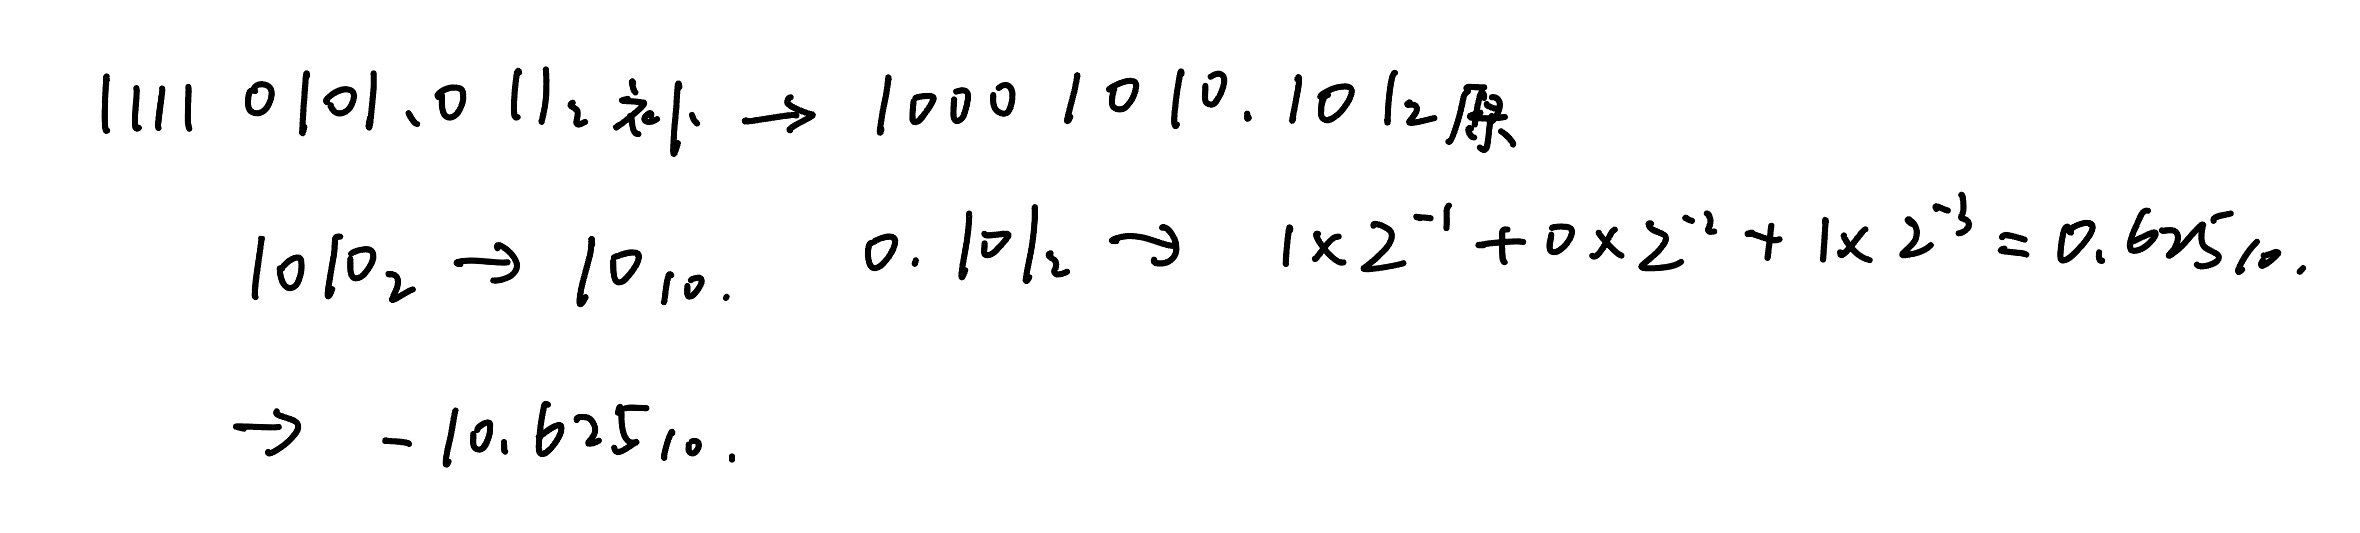 1111 0101.011₂补 → 1000 1010.101₂原
1010₂ → 10₁₀. 0.101₂ → 1×2⁻¹+0×2⁻²+1×2⁻³=0.625₁₀.
→ -10.625₁₀.